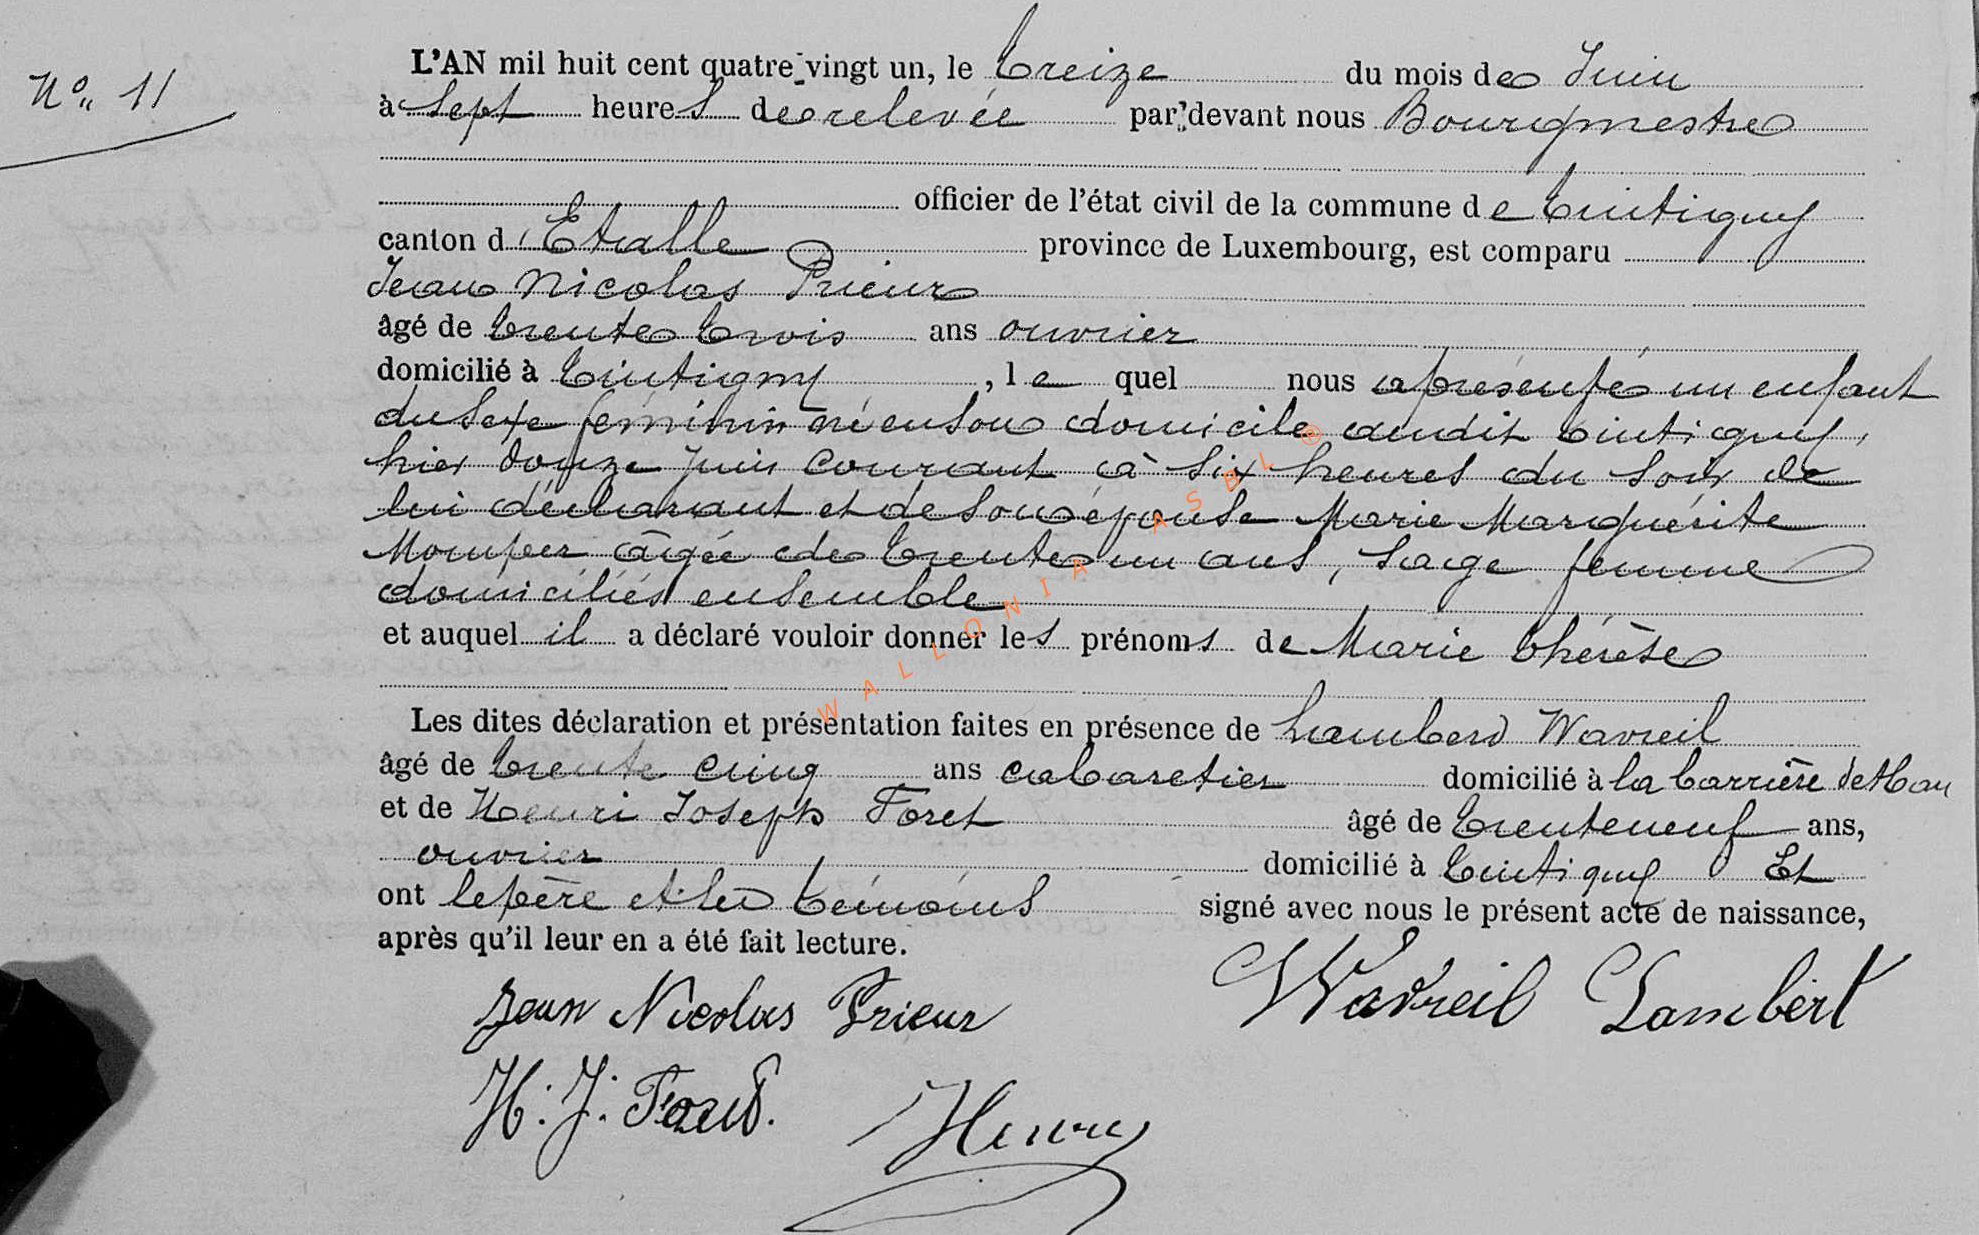 N° 11
L'AN mil huit cent quatre-vingt un, le treize du mois de Juin
à sept heures de relevée par devant nous Bourgmestre
officier de l'état civil de la commune de Tintigny
canton d'Etalle province de Luxembourg, est comparu
Jean Nicolas Prieur
âgé de trente trois ans ouvrier
domicilié à Tintigny, lequel nous a présenté un enfant
du sexe féminin né en son domicile audit Tintigny,
hier douze Juin courant à six heures du soir de
lui déclarant et de son épouse Marie Marguérite
âgée de trente un ans, sage femme
domiciliés ensemble
et auquel il a déclaré vouloir donner les prénoms de Marie Thérèse
Les dites déclaration et présentation faites en présence de Lambert Wavreil
âgé de trente cinq ans cabaretier domicilié à la barrière de Han
et de Henri Joseph Foret âgé de trente neuf ans,
ouvrier domicilié à Tintigny Et
ont le père et les témoins signé avec nous le présent acte de naissance,
après qu'il leur en a été fait lecture.
Jean Nicolas Prieur Wavreil Lambert
H. J. Foret. Henry
WALLONIA ASBL ®